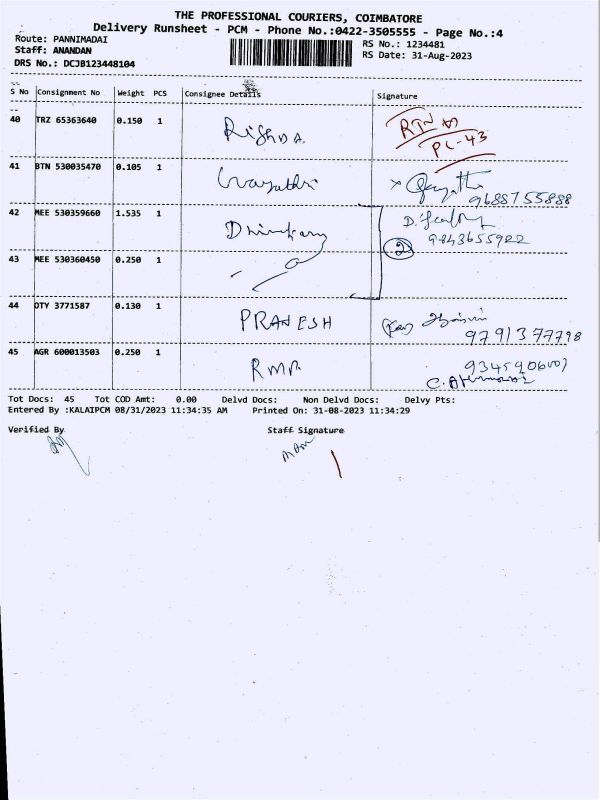 THE PROFESSIONAL COURIERS, COIMBATORE
Delivery Runsheet - PCM - Phone No.:0422-3505555 - Page No.:4
Route: PANNIMADAI
RS No.: 1234481
Staff: ANANDAN
RS Date: 31-Aug-2023
DRS No.: DCJB123448104
S No Consignment No Weight PCS Consignee Details Signature
40 TRZ 65363640 0.150 1 RTN
PC-43
41 BTN 530035470 0.105 1 Gayathri
9688755888
42 MEE 530359660 1.535 1
9843655922
2
43 MEE 530360450 0.250 1
44 DTY 3771587 0.130 1 PRANESH
9791377798
45 AGR 600013503 0.250 1 RMR
Tot Docs: 45 Tot COD Amt: 0.00 Delvd Docs: Non Delvd Docs: Delvy Pts:
Entered By :KALAIPCM 08/31/2023 11:34:35 AM Printed On: 31-08-2023 11:34:29
Verified By Staff Signature